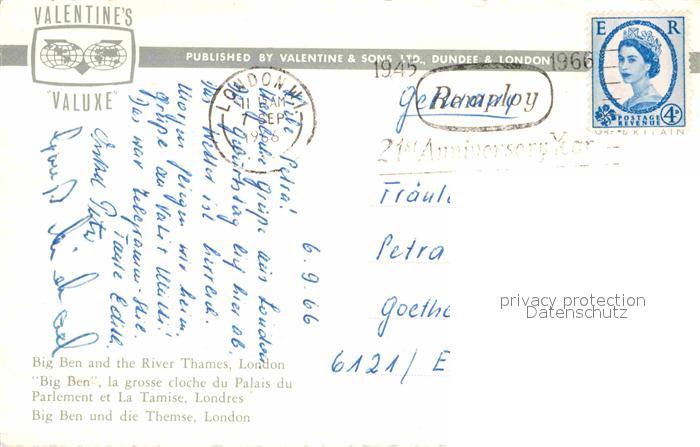 VALENTINE'S
"VALUXE"
PUBLISHED BY VALENTINE & SONS LTD., DUNDEE & LONDON
LONDON
11 AM
7 SEP
1966
1945 1966
Remploy
21st Anniversary Year
E R
POSTAGE
REVENUE
4D
Germany
Fräul
Petra
Goethe
6121/ E
privacy protection
Datenschutz
6.9.66
Petra!
Grüße aus London
Geburtstag hier ab.
Das Wetter ist herrlich.
Morgen fliegen wir heim.
Grüße an Vati + Mutti!
Das war Telegramm-Stil.
Tante Edith
Onkel
Big Ben and the River Thames, London
"Big Ben", la grosse cloche du Palais du
Parlement et La Tamise, Londres
Big Ben und die Themse, London